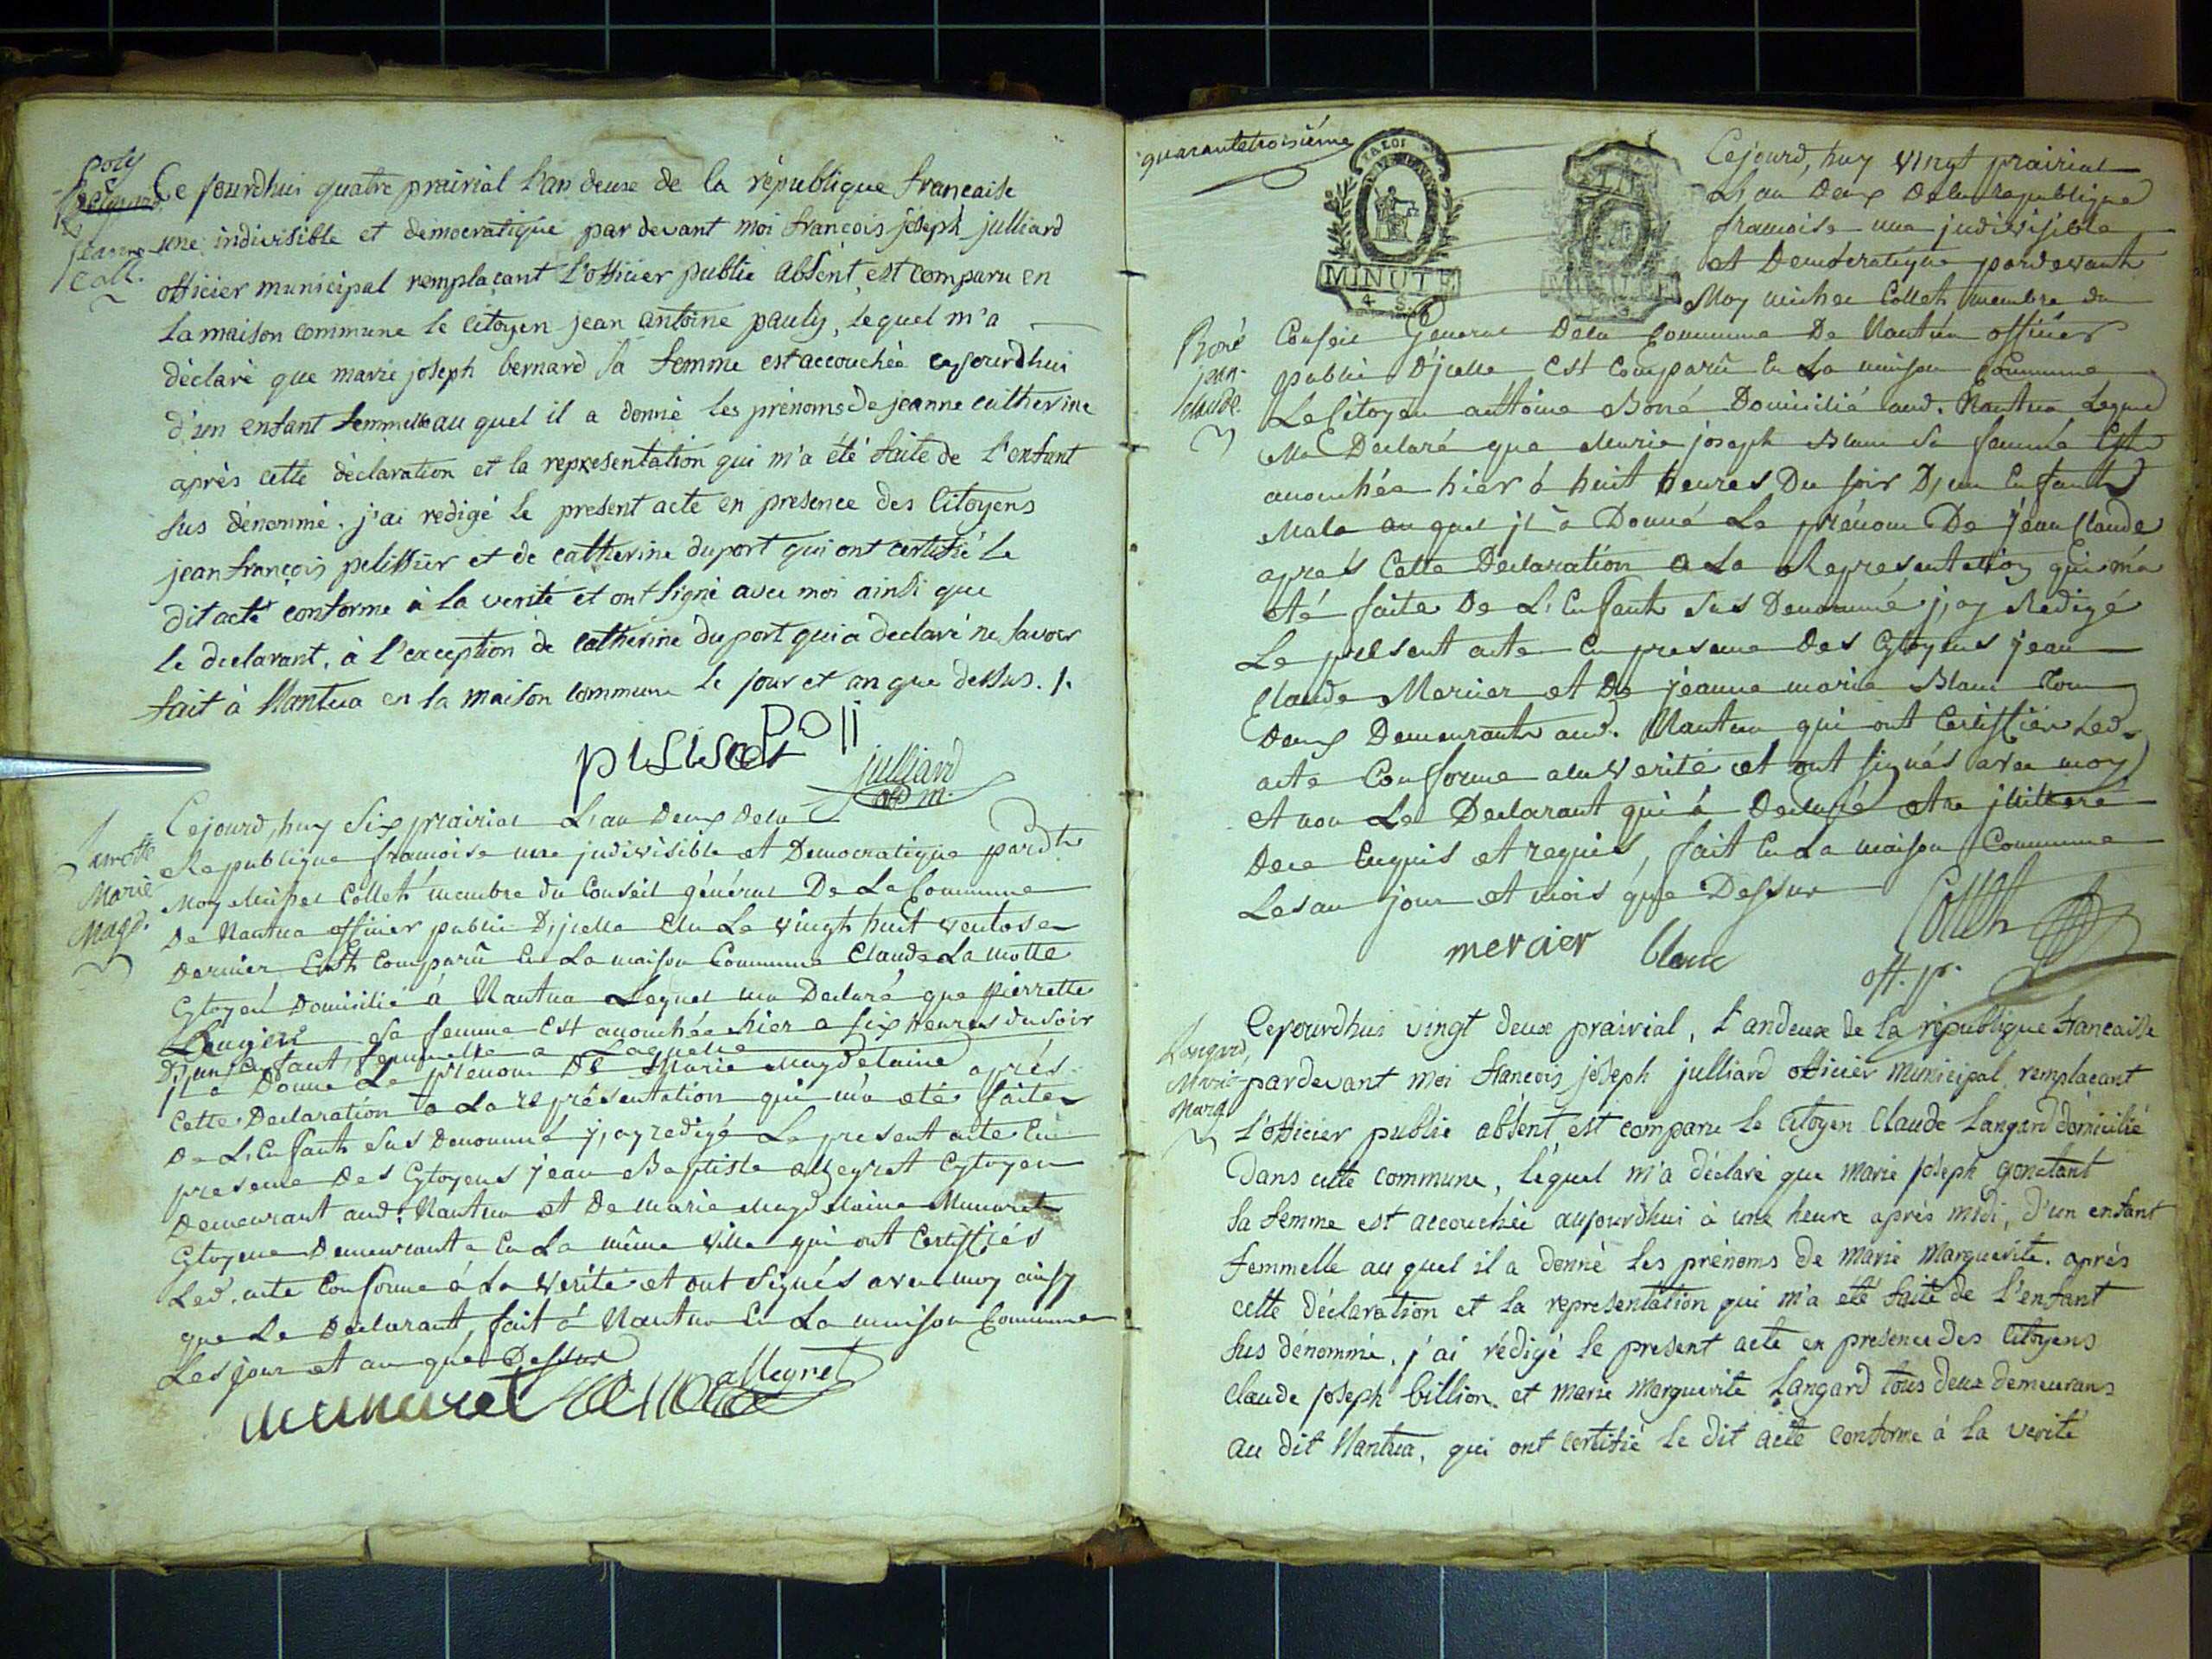 poly
Bernard
jeanne
Cath.
Ce jourdhui quatre prairial l'an deux de la republique francaise
une indivisible et democratique par devant moi francois joseph julliard
officier municipal remplacant l'officier public absent, est comparu en
la maison commune le citoyen jean antoine pauly, lequel m'a
déclaré que marie joseph bernard sa femme est accouchée cejourdhui
d'un enfant femmelle au quel il a donné les prénoms de jeanne catherine
après cette déclaration et la representation qui m'a été faite de l'enfant
sus dénommé. j'ai redigé le present acte en presence des Citoyens
jean françois pelissier et de catherine duport qui ont certifié le
dit acte conforme à la verité et ont signé avec moi ainsi que
le declarant, à l'exception de catherine duport qui a declaré ne savoir
fait à Nantua en la maison commune le jour et an que dessus. /.
poli
julliard
off. m.
Lamotte
Marie
Magd.
Cejourd,huy six prairial L,an Deux Dela
Republique francoise une jndivisible et Democratique pardt
Moy Michel Collet membre du Conseil général De La Commune
De Nantua officier public D,jcelle Elu Le vingt huit ventose
dernier Est Comparû En La maison Commune Claude La motte
Cytoyen Domicilié à Nantua Lequel ma Declaré que pierrette
sa femme est accouchée hier a six heures du soir
D,un Enfant femmelle a Laquelle
jl a Donné Le prenom De Marie Magdelaine après
Cette Declaration a La représentation qui m'a eté faite
De L,Enfant sus denommé j,ay redigé Le present acte En
presence Des Cytoyens jean Baptiste allegret Cytoyen
Demeurant aud. Nantua et De marie magdelaine Munuret
Cytoyene Demeurante En La même ville qui ont Certiffiés
Led. acte Conforme à La verité et ont signés avec moy ainsy
que Le Declarant, fait à Nantua En La maison Commune
Les jour et an que Dessus
munuret allegret
quarantetroisiéme
LA LOI
MINUTE
4 S.
MINUTE
Cejourd,huy vingt prairial
L,an Deux Dela Republique
francoise une jndivisible
et Democratique pardevant
Moy michel Collet membre du
Boné
jean-
claude.
Conseil General Dela Commune De Nantua officier
public D'jcelle est Comparû En La maison Commune
Le Citoyen antoine Boné Domicilié aud. Nantua Lequel
Ma Declaré que Marie joseph Blanc sa femme Est
accouchée hier à huit heures Du soir D,un Enfant
Male au quel jl a Donné Le prénom De jean Claude
après Cette Declaration a La Representation qui m'a
eté faite De L,Enfant sus Denommé j,ay Redigé
Le présent acte En presence Des Cytoyens jean
Claude Mercier et De jeanne marie Blanc tous
Deux Demeurants aud. Nantua qui ont Certiffiés Led.
acte Conforme a la verité et ont signés avec moy
et non Le Declarant qui à Declaré etre jllitteré
Dece Enquis et requis, fait En La maison Commune
Les an jour et mois que Dessus
mercier blanc Collet
off. p.
Langard,
Marie
Marg.
Cejourdhui vingt deux prairial, l'an deux de la république francaise
pardevant moi francois joseph julliard officier municipal remplacant
l'officier public absent, est comparu le citoyen Claude Langard domicilié
dans cette commune, lequel m'a déclaré que marie joseph gonctant
sa femme est accouchée aujourdhui à une heure après midi, d'un enfant
femmelle au quel il a donné les prénoms de marie Marguerite. après
cette déclaration et la representation qui m'a eté faite de l'enfant
sus dénommé, j'ai rédigé le present acte en presence des Citoyens
claude joseph billion et marie marguerite Langard tous deux demeurans
au dit Nantua, qui ont certifié le dit acte conforme à la verité